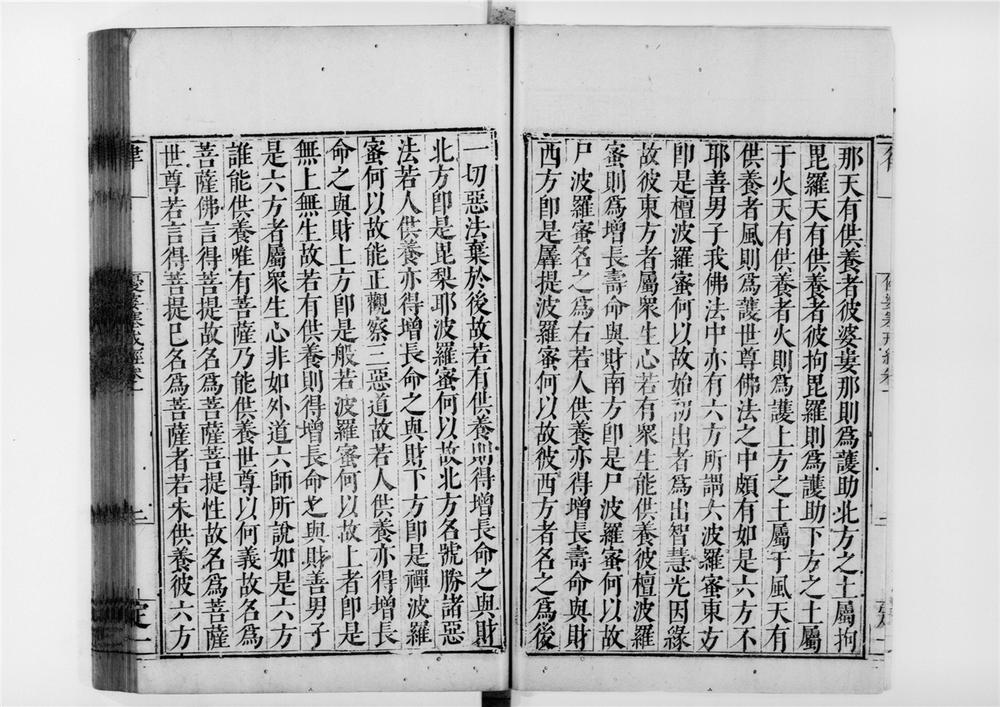 那天有供養者彼婆婁那則爲護助北方之土屬拘
毘羅天有供養者彼拘毘羅則爲護助下方之土屬
于火天有供養者火則爲護上方之土屬于風天有
供養者風則爲護世尊佛法之中頗有如是六方不
耶善男子我佛法中亦有六方所謂六波羅蜜東方
卽是檀波羅蜜何以故始初出者爲出智慧光因緣
故彼東方者屬衆生心若有衆生能供養彼檀波羅
蜜則爲增長壽命與財南方卽是尸波羅蜜何以故
尸波羅蜜名之爲右若人供養亦得增長壽命與財
西方卽是羼提波羅蜜何以故彼西方者名之爲後
一切惡法棄於後故若有供養則得增長命之與財
北方卽是毘梨耶波羅蜜何以故北方名號勝諸惡
法若人供養亦得增長命之與財下方卽是禪波羅
蜜何以故能正觀察三惡道故若人供養亦得增長
命之與財上方卽是般若波羅蜜何以故上者卽是
無上無生故若有供養則得增長命之與財善男子
是六方者屬衆生心非如外道六師所說如是六方
誰能供養唯有菩薩乃能供養世尊以何義故名爲
菩薩佛言得菩提故名爲菩薩菩提性故名爲菩薩
世尊若言得菩提已名爲菩薩者若未供養彼六方
律
優婆塞戒經卷一
定一